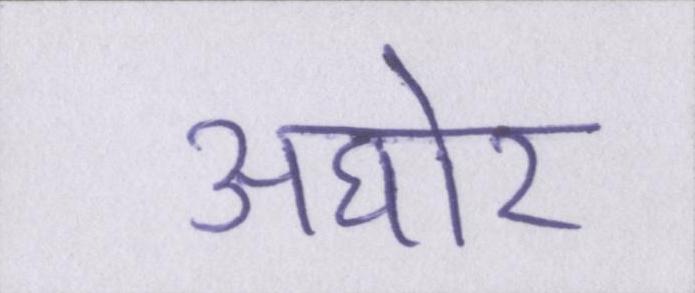 अघोर